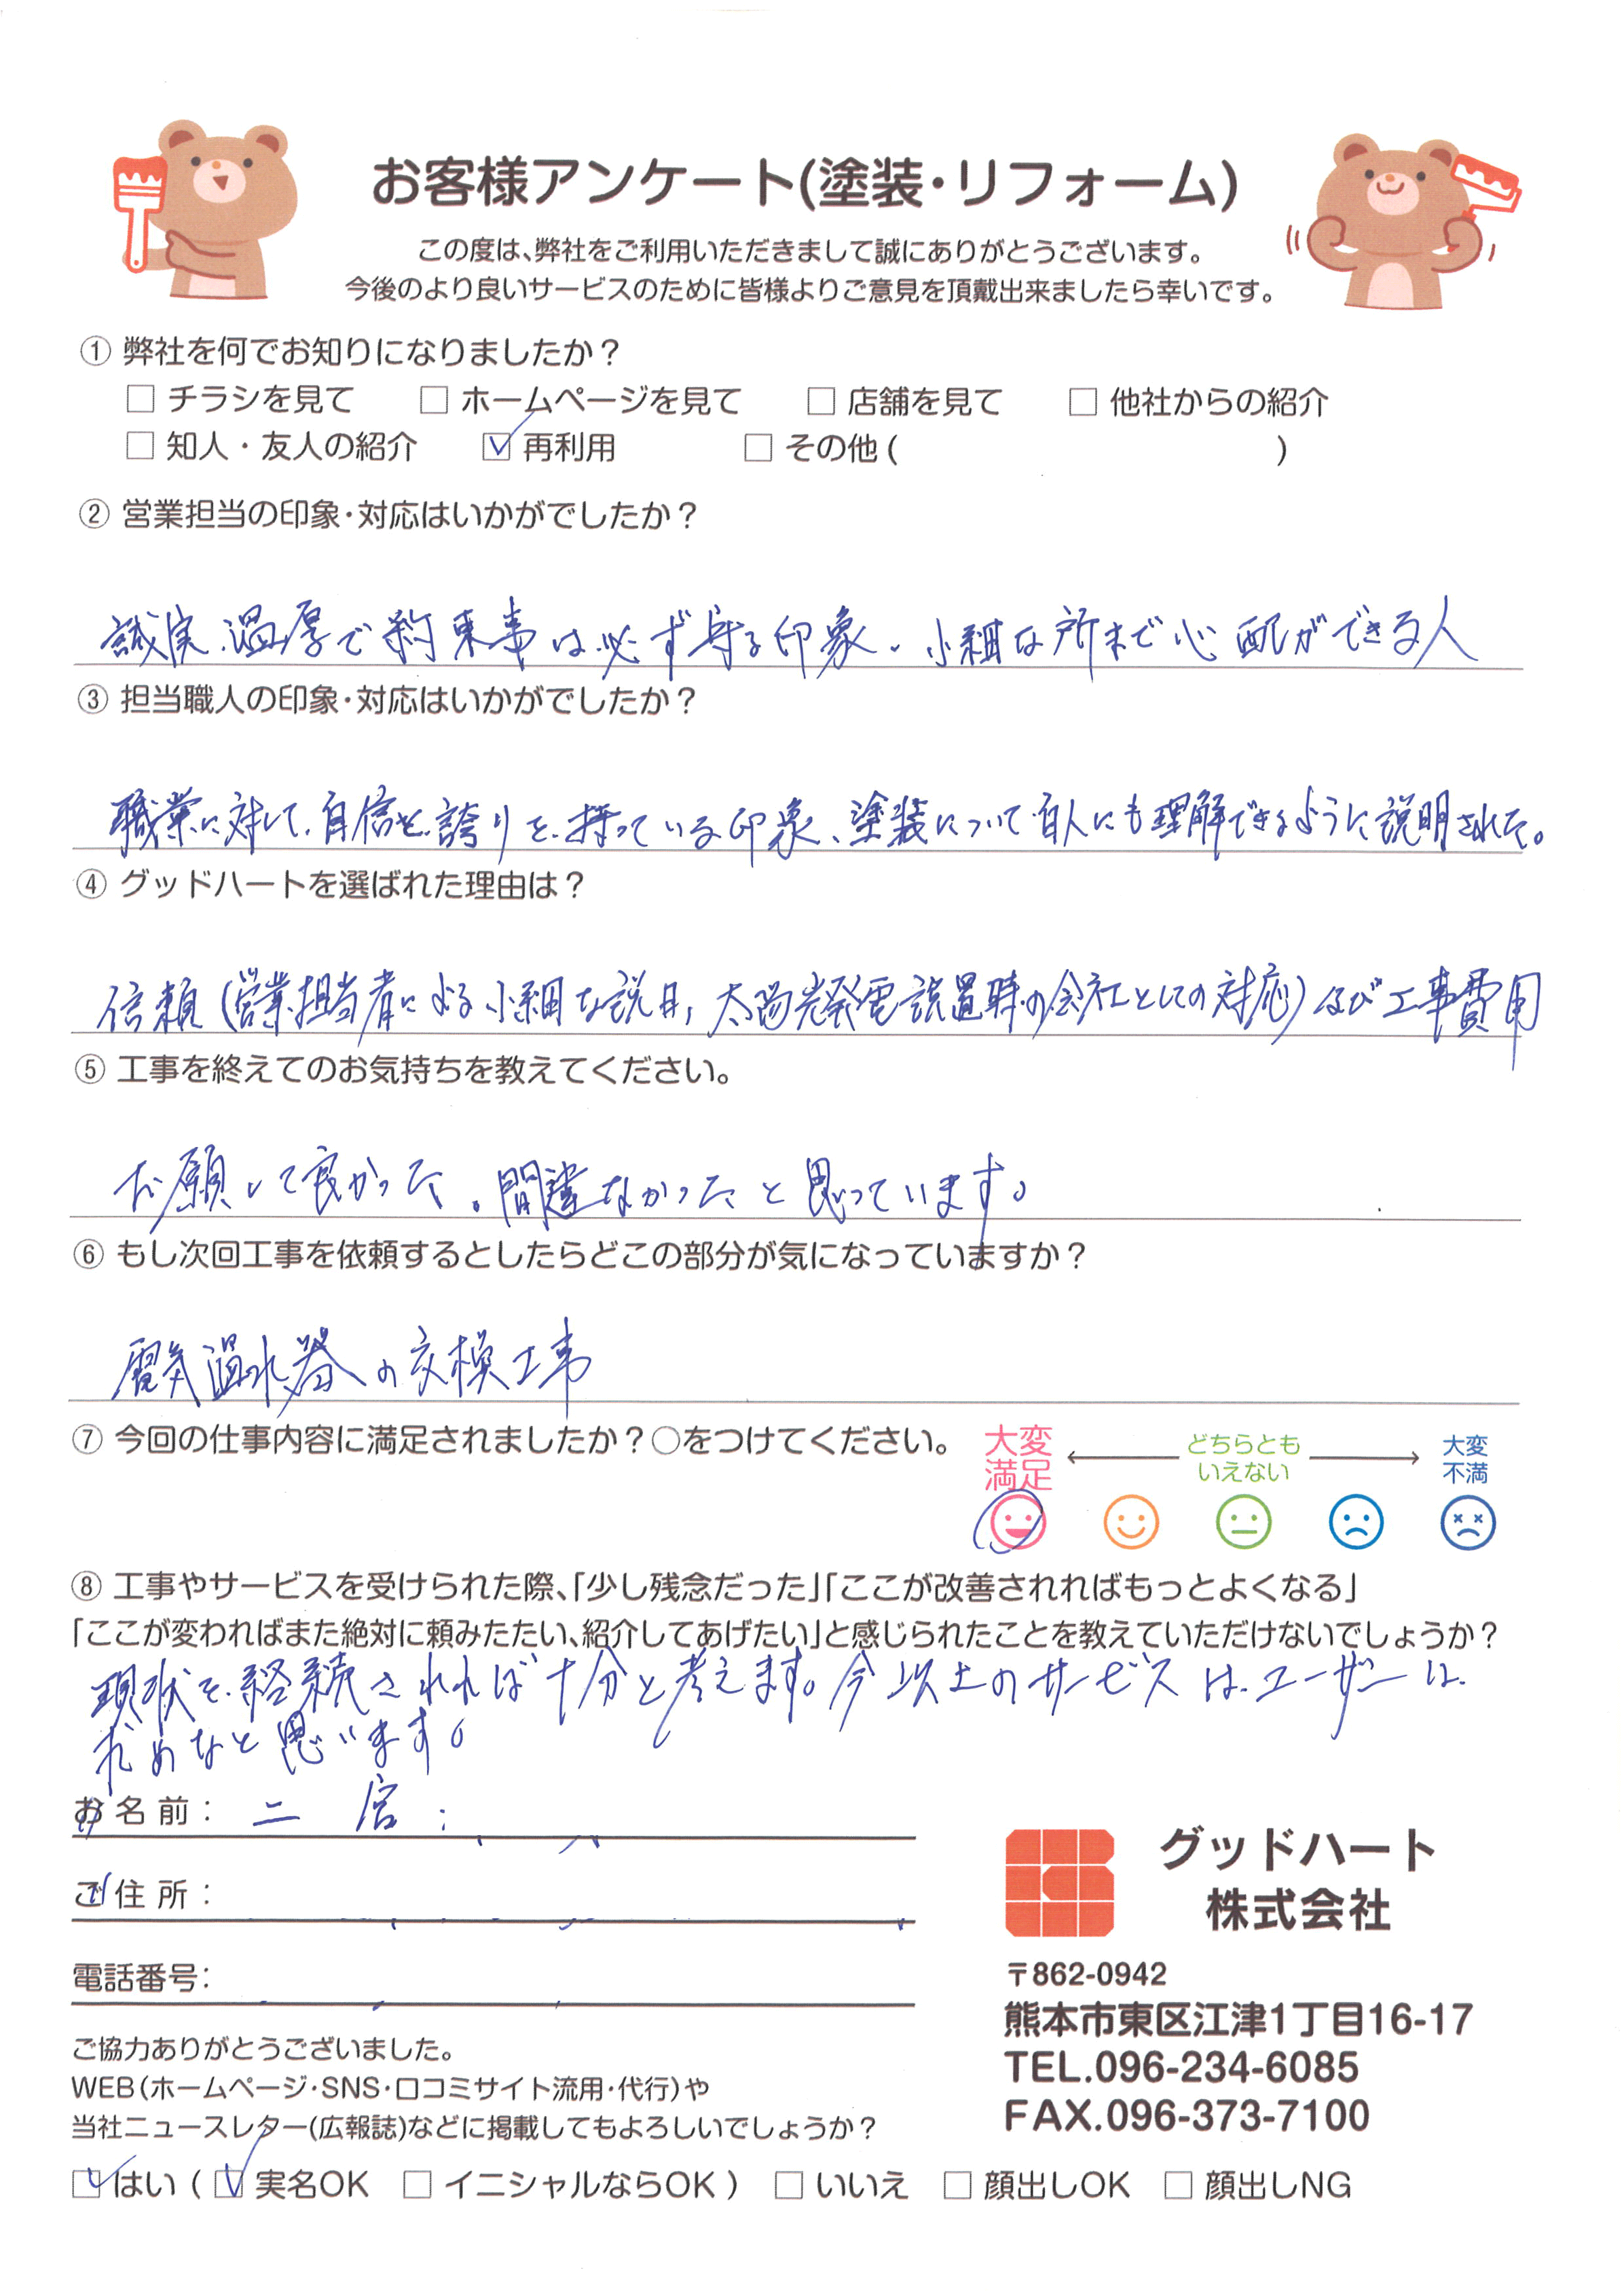 お客様アンケート(塗装・リフォーム)
この度は、弊社をご利用いただきまして誠にありがとうございます。
今後のより良いサービスのために皆様よりご意見を頂戴出来ましたら幸いです。
① 弊社を何でお知りになりましたか？
□ チラシを見て □ ホームページを見て □ 店舗を見て □ 他社からの紹介
□ 知人・友人の紹介 ☑ 再利用 □ その他 ( )
② 営業担当の印象・対応はいかがでしたか？
誠実、温厚で約束事は必ず守る印象。小細な所まで心配ができる人
③ 担当職人の印象・対応はいかがでしたか？
職業に対して、自信と誇りを持っている印象、塗装について百人にも理解できるように説明された。
④ グッドハートを選ばれた理由は？
信頼(営業担当者による小細な説明,太陽光発電設置時の会社としての対応)及び工事費用
⑤ 工事を終えてのお気持ちを教えてください。
お願して良かった。間違なかったと思っています。
⑥ もし次回工事を依頼するとしたらどこの部分が気になっていますか？
電気温水器の交換工事
⑦ 今回の仕事内容に満足されましたか？○をつけてください。
大変満足 どちらともいえない 大変不満
⑧ 工事やサービスを受けられた際、「少し残念だった」「ここが改善されればもっとよくなる」
「ここが変わればまた絶対に頼みたたい、紹介してあげたい」と感じられたことを教えていただけないでしょうか？
現状を継続されれば十分と考えます。今以上のサービスは、ユーザーは、
求めなと思います。
お名前： 二宮
ご住所：
電話番号：
グッドハート
株式会社
〒862-0942
熊本市東区江津1丁目16-17
TEL.096-234-6085
FAX.096-373-7100
ご協力ありがとうございました。
WEB(ホームページ・SNS・口コミサイト流用・代行)や
当社ニュースレター(広報誌)などに掲載してもよろしいでしょうか？
☑ はい ( ☑ 実名OK □ イニシャルならOK ) □ いいえ □ 顔出しOK □ 顔出しNG